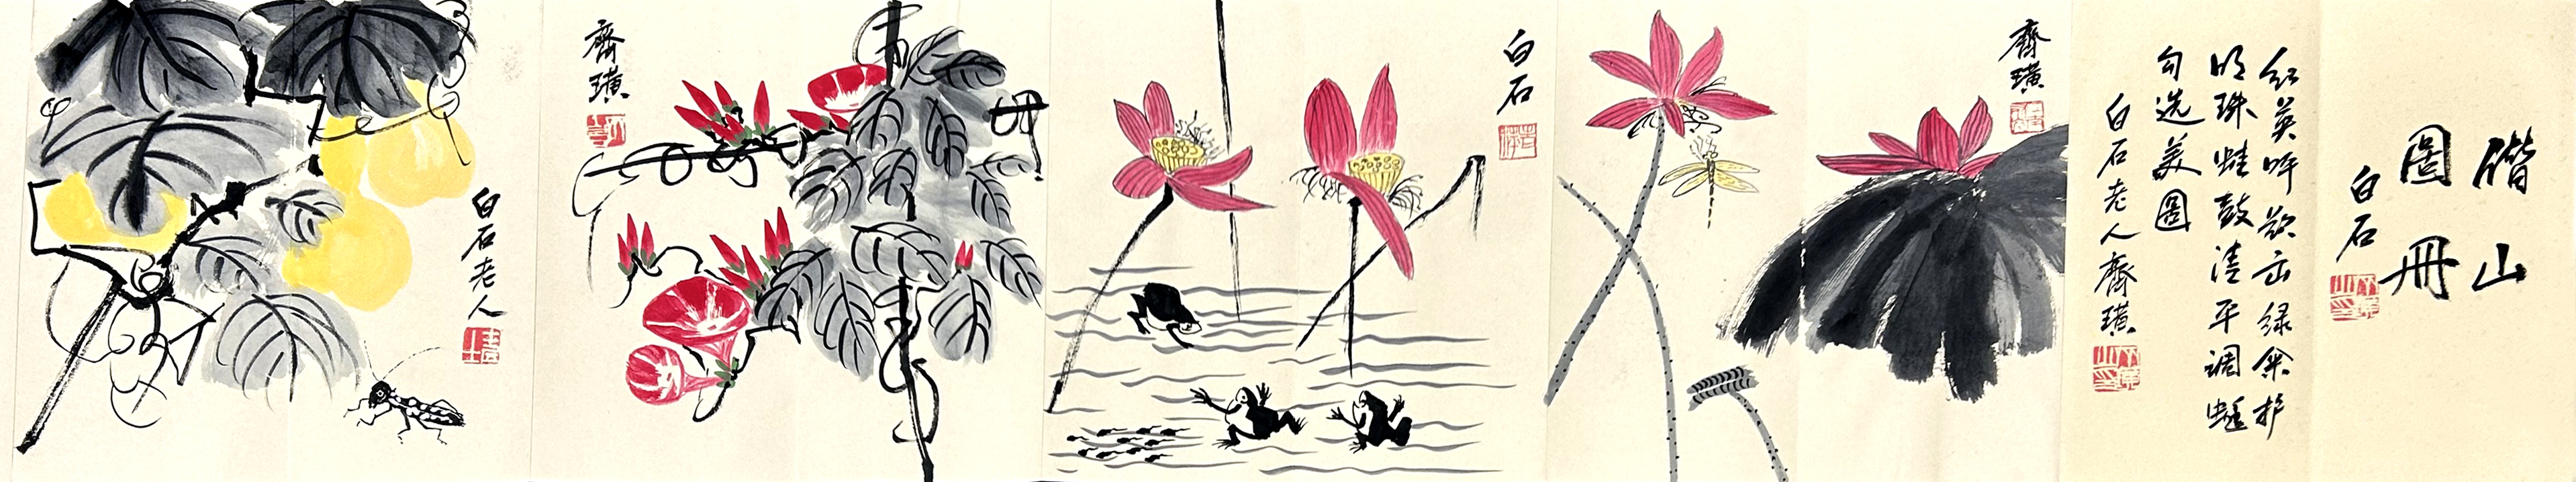 借山
圖冊
白石
红英呼欲出绿伞护
明珠蛙鼓清平调蜓
勾选美圖
白石老人齊璜
齊璜
白石
齊璜
白石老人